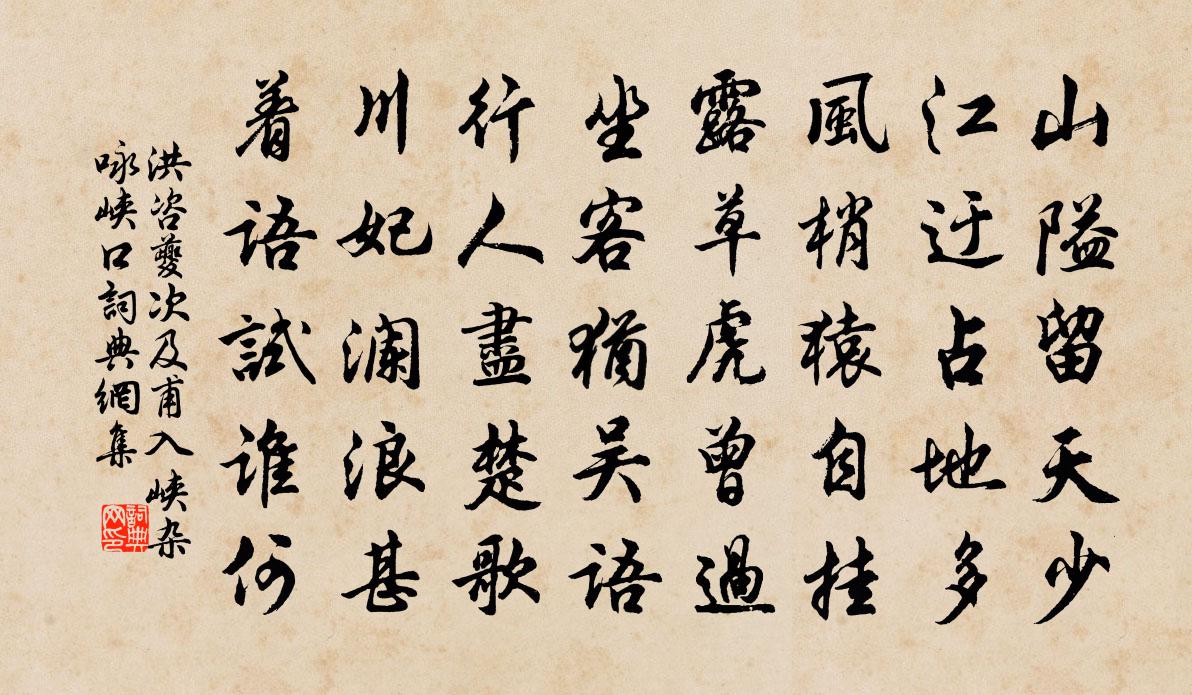 山隘留天少
江迂占地多
風梢猿自挂
露草虎曾過
坐客猶吴語
行人盡楚歌
川妃澜浪甚
着語試誰何
洪咨夔次及甫入峡杂
咏峡口詞典網集
詞典
网印